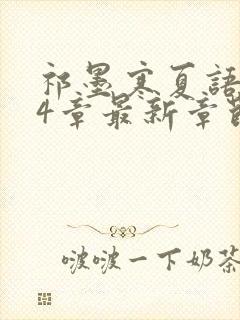 祁墨寒夏語
4章最新章節
啵啵一下奶茶